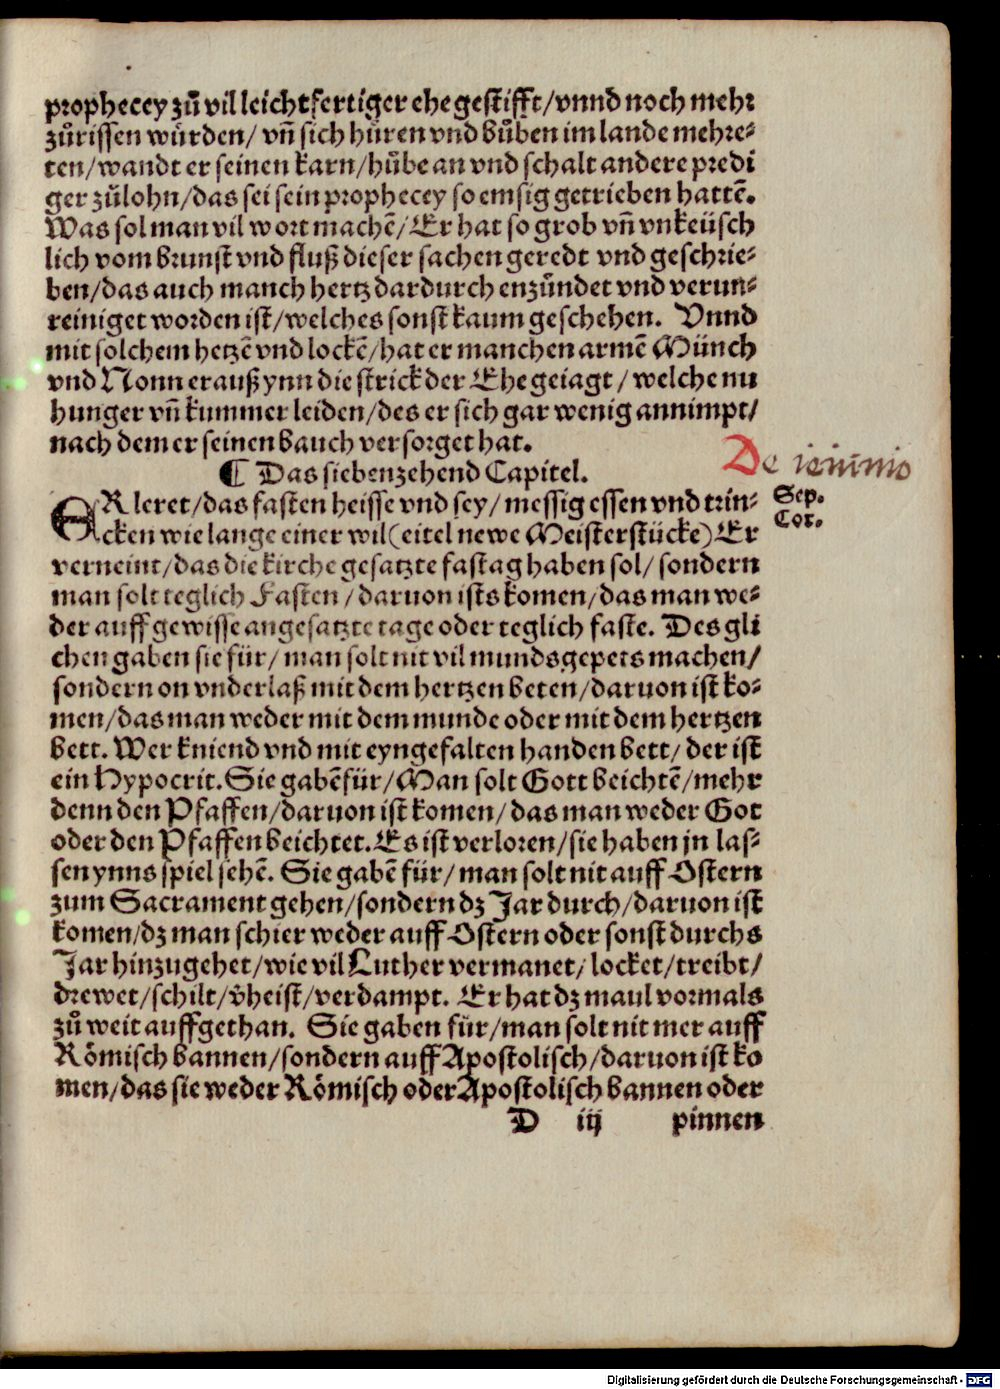 prophecey zů vil leichtfertiger ehe gestifft/vnnd noch mehr
zůrissen würden/ vñ sich hůren vnd bůben im lande mehre⸗
ten/wandt er seinen karn/hůbe an vnd schalt andere predi
ger zůlohn/das sei sein prophecey so emsig getrieben hattē.
Was sol man vil wort machē/Er hat so grob vñ vnkeüsch
lich vom brunst vnd fluß dieser sachen geredt vnd geschrie⸗
ben/das auch manch hertz dardurch enzündet vnd verun⸗
reiniget worden ist/welches sonst kaum geschehen. Vnnd
mit solchem hetzē vnd lockē/hat er manchen armē Münch
vnd Nonn erauß ynn die strick der Ehe geiagt/welche nu
hunger vñ kummer leiden/des er sich gar wenig annimpt/
nach dem er seinen bauch versorget hat.
De ieiunio
¶ Das siebenzehend Capitel.
ER leret/das fasten heisse vnd sey/messig essen vnd trin⸗
Sep.
cken wie lange einer wil(eitel newe Meisterstücke)Er
Cor.
verneint/das die kirche gesatzte fastag haben sol/ sondern
man solt teglich Fasten/daruon ists komen/das man we⸗
der auff gewisse angesatzte tage oder teglich faste. Des gli
chen gaben sie für/ man solt nit vil mundsgepets machen/
sondern on vnderlaß mit dem hertzen beten/daruon ist ko⸗
men/das man weder mit dem munde oder mit dem hertzen
bett. Wer kniend vnd mit eyngefalten handen bett/ der ist
ein Hypocrit. Sie gabē für/Man solt Gott beichtē/mehr
denn den Pfaffen/daruon ist komen/das man weder Got
oder den Pfaffen beichtet. Es ist verloren/sie haben jn las⸗
sen ynns spiel sehē. Sie gabē für/man solt nit auff Ostern
zum Sacrament gehen/sondern dz Jar durch/daruon ist
komen/dz man schier weder auff Ostern oder sonst durchs
Jar hinzugehet/wie vil Luther vermanet/locket/treibt/
drewet/schilt/v̊heist/verdampt. Er hat dz maul vormals
zů weit auffgethan. Sie gaben für/man solt nit mer auff
Römisch bannen/sondern auff Apostolisch/daruon ist ko
men/das sie weder Römisch oder Apostolisch bannen oder
D iij pinnen
Digitalisierung gefördert durch die Deutsche Forschungsgemeinschaft - DFG